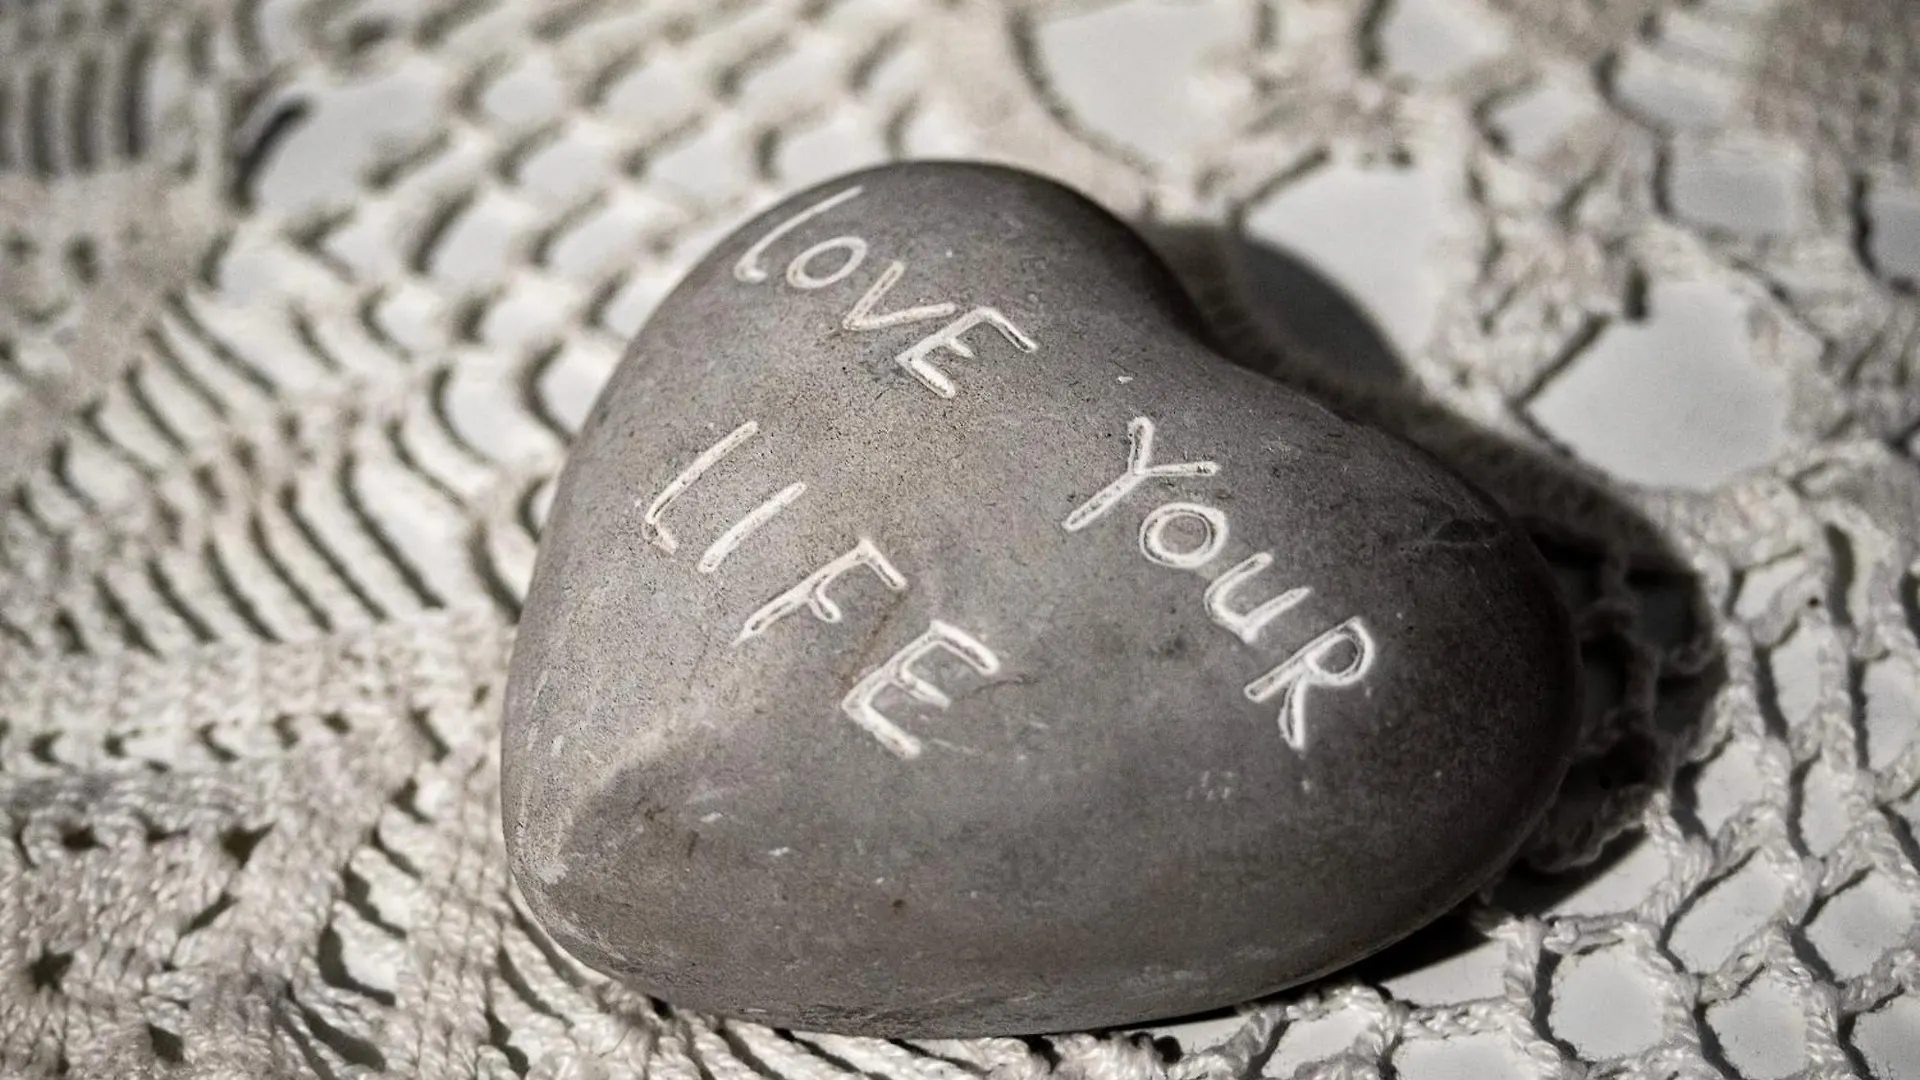 LOVE
YOUR
LIFE